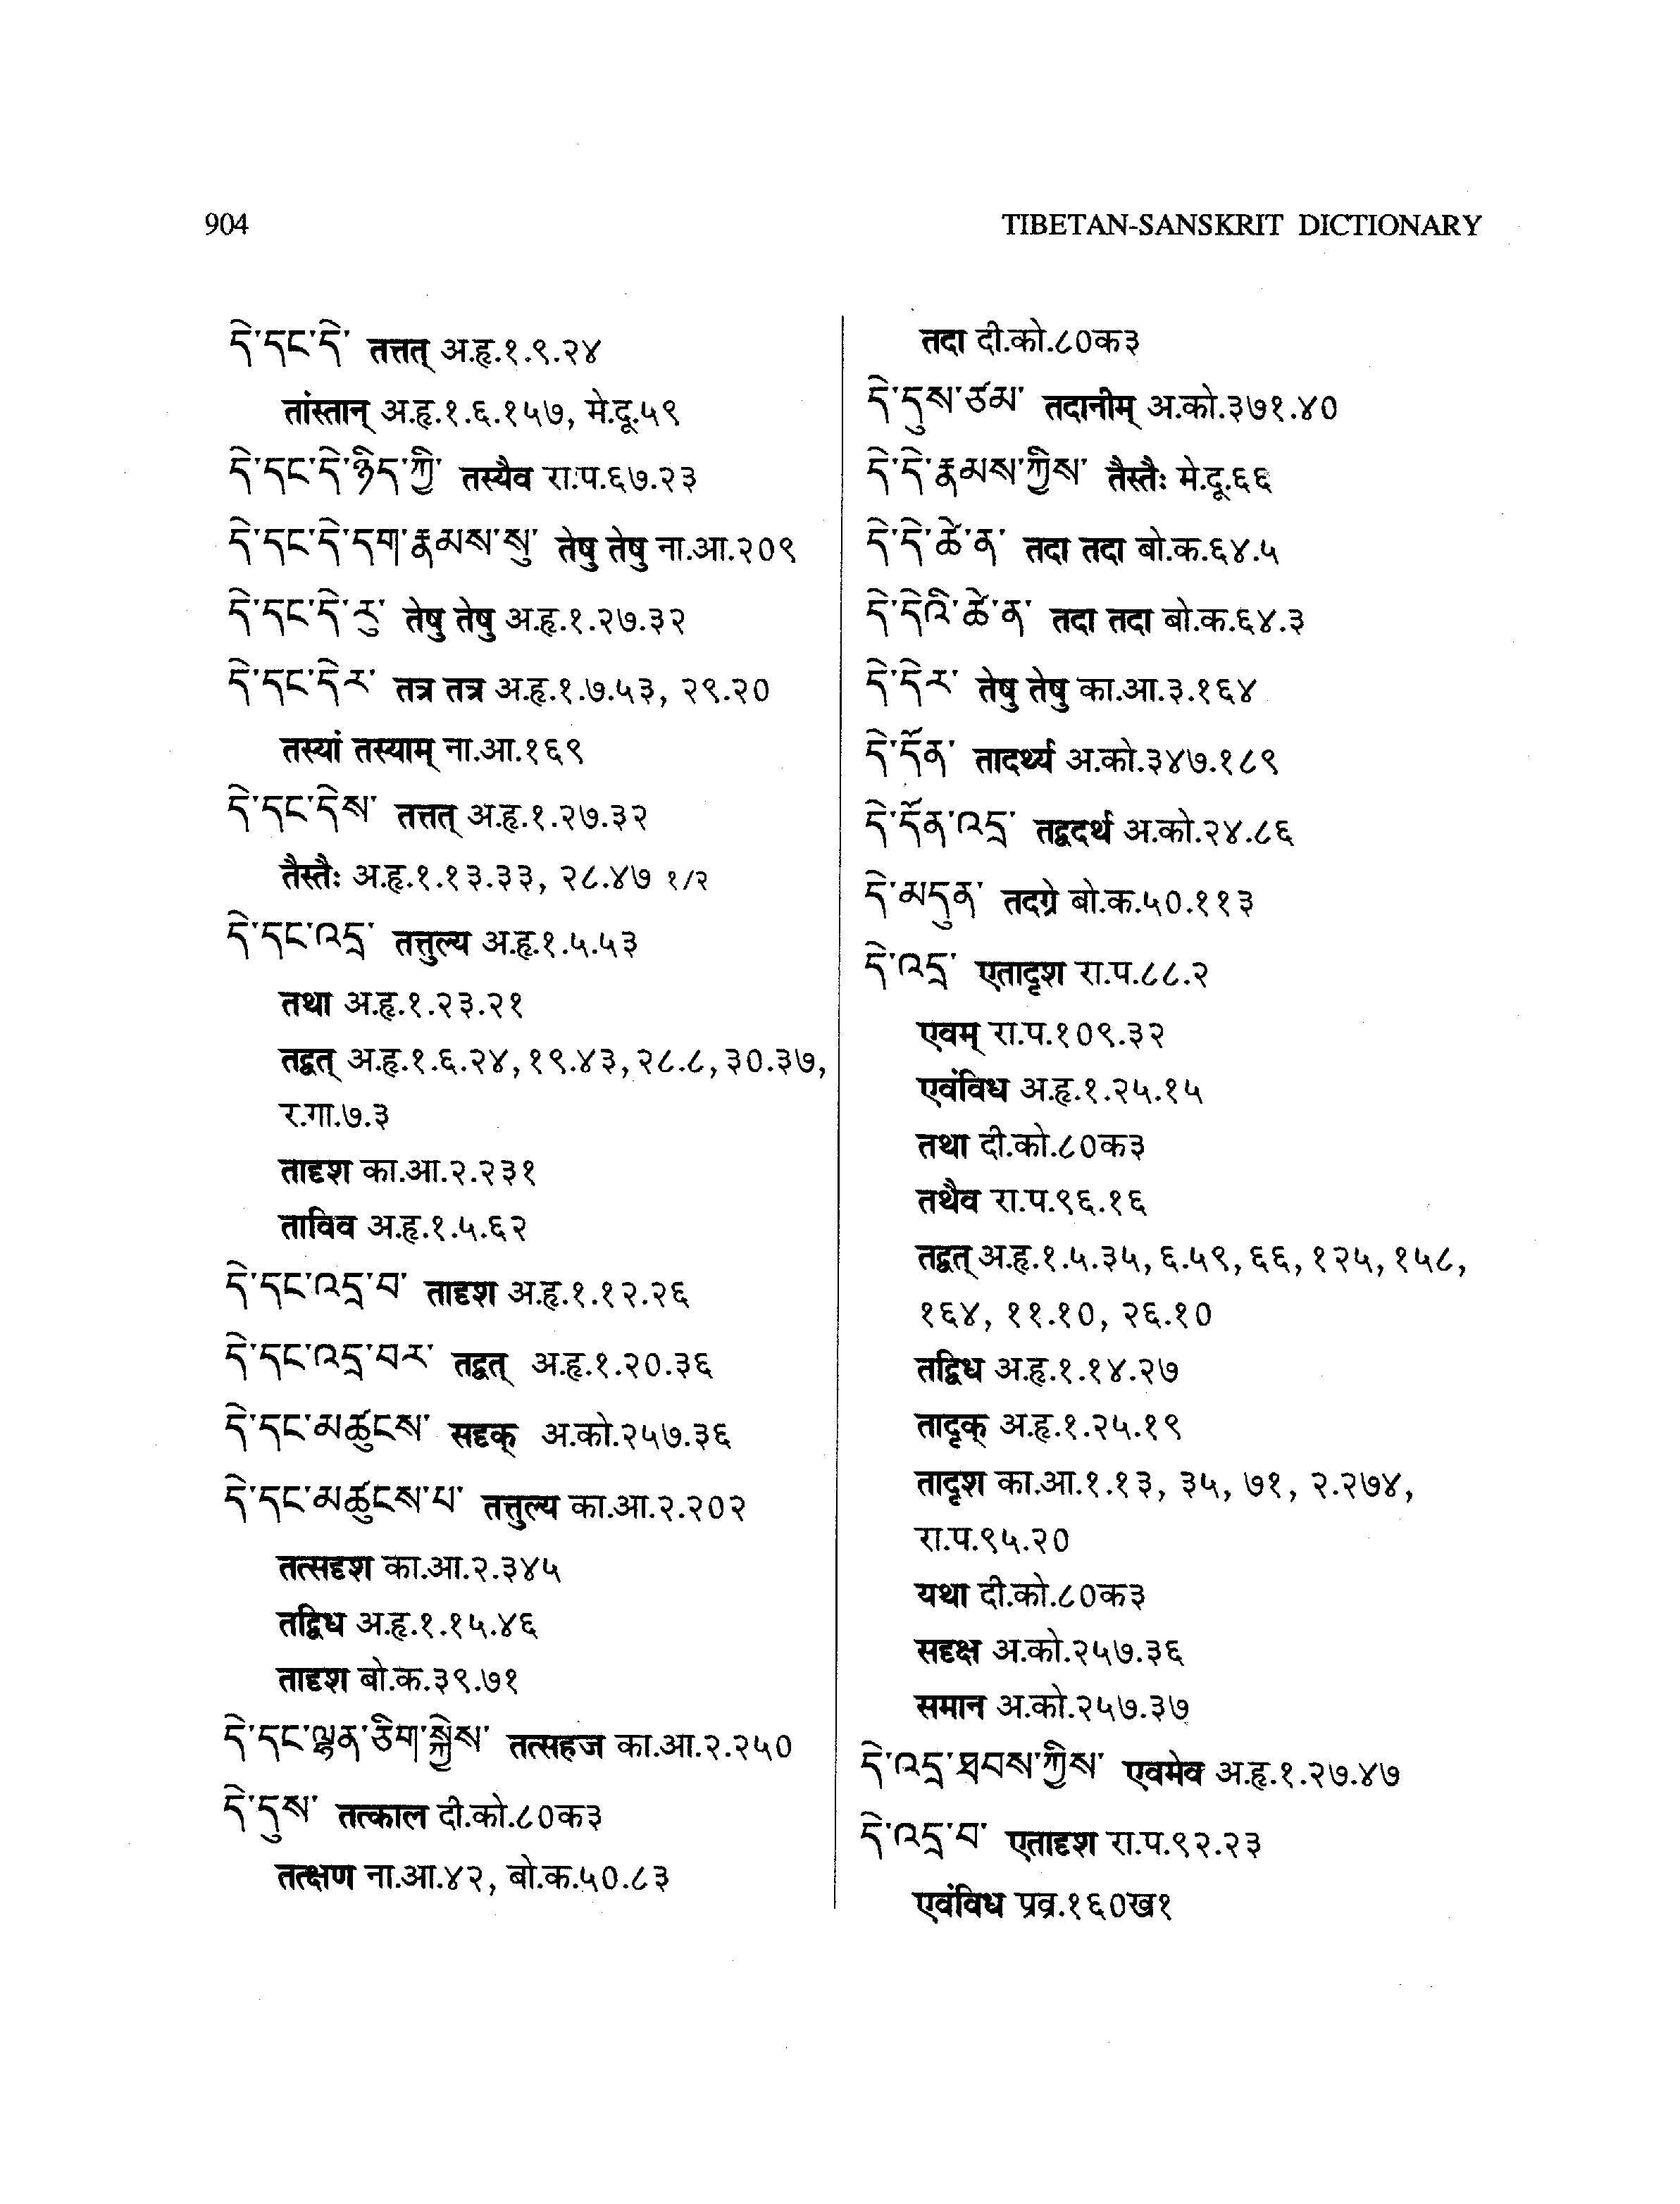 904
TIBETAN-SANSKRIT DICTIONARY
དེ་དང་དེ་ तत्तत् अ.हृ.१.९.२४
तांस्तान् अ.हृ.१.६.१५७, मे.दू.५९
དེ་དང་དེ་ཉིད་ཀྱི་ तस्यैव रा.प.६७.२३
དེ་དང་དེ་དག་རྣམས་སུ་ तेषु तेषु ना.आ.२०९
དེ་དང་དེ་རུ་ तेषु तेषु अ.हृ.१.२७.३२
དེ་དང་དེར་ तत्र तत्र अ.हृ.१.७.५३, २९.२०
तस्यां तस्याम् ना.आ.१६९
དེ་དང་དེས་ तत्तत् अ.हृ.१.२७.३२
तैस्तैः अ.हृ.१.१३.३३, २८.४७ १/२
དེ་དང་འདྲ་ तत्तुल्य अ.हृ.१.५.५३
तथा अ.हृ.१.२३.२१
तद्वत् अ.हृ.१.६.२४, १९.४३, २८.८, ३०.३७,
र.गा.७.३
तादृश का.आ.२.२३१
ताविव अ.हृ.१.५.६२
དེ་དང་འདྲ་བ་ तादृश अ.हृ.१.१२.२६
དེ་དང་འདྲ་བར་ तद्वत् अ.हृ.१.२०.३६
དེ་དང་མཚུངས་ सदृक् अ.को.२५७.३६
དེ་དང་མཚུངས་པ་ तत्तुल्य का.आ.२.२०२
तत्सदृश का.आ.२.३४५
तद्विध अ.हृ.१.१५.४६
तादृश बो.क.३९.७१
དེ་དང་ལྷན་ཅིག་སྐྱེས་ तत्सहज का.आ.२.२५०
དེ་དུས་ तत्काल दी.को.८०क३
तत्क्षण ना.आ.४२, बो.क.५०.८३
तदा दी.को.८०क३
དེ་དུས་ཙམ་ तदानीम् अ.को.३७१.४०
དེ་དེ་རྣམས་ཀྱིས་ तैस्तैः मे.दू.६६
དེ་དེ་ཚེ་ན་ तदा तदा बो.क.६४.५
དེ་དེའི་ཚེ་ན་ तदा तदा बो.क.६४.३
དེ་དེར་ तेषु तेषु का.आ.३.१६४
དེ་དོན་ तादर्थ्य अ.को.३४७.१८९
དེ་དོན་འདྲ་ तद्वदर्थ अ.को.२४.८६
དེ་མདུན་ तदग्रे बो.क.५०.११३
དེ་འདྲ་ एतादृश रा.प.८८.२
एवम् रा.प.१०९.३२
एवंविध अ.हृ.१.२५.१५
तथा दी.को.८०क३
तथैव रा.प.९६.१६
तद्वत् अ.हृ.१.५.३५, ६.५९, ६६, १२५, १५८,
१६४, ११.१०, २६.१०
तद्विध अ.हृ.१.१४.२७
तादृक् अ.हृ.१.२५.१९
तादृश का.आ.१.१३, ३५, ७१, २.२७४,
रा.प.९५.२०
यथा दी.को.८०क३
सदृक्ष अ.को.२५७.३६
समान अ.को.२५७.३७
དེ་འདྲ་ཐབས་ཀྱིས་ एवमेव अ.हृ.१.२७.४७
དེ་འདྲ་བ་ एतादृश रा.प.९२.२३
एवंविध प्रव्र.१६०ख१